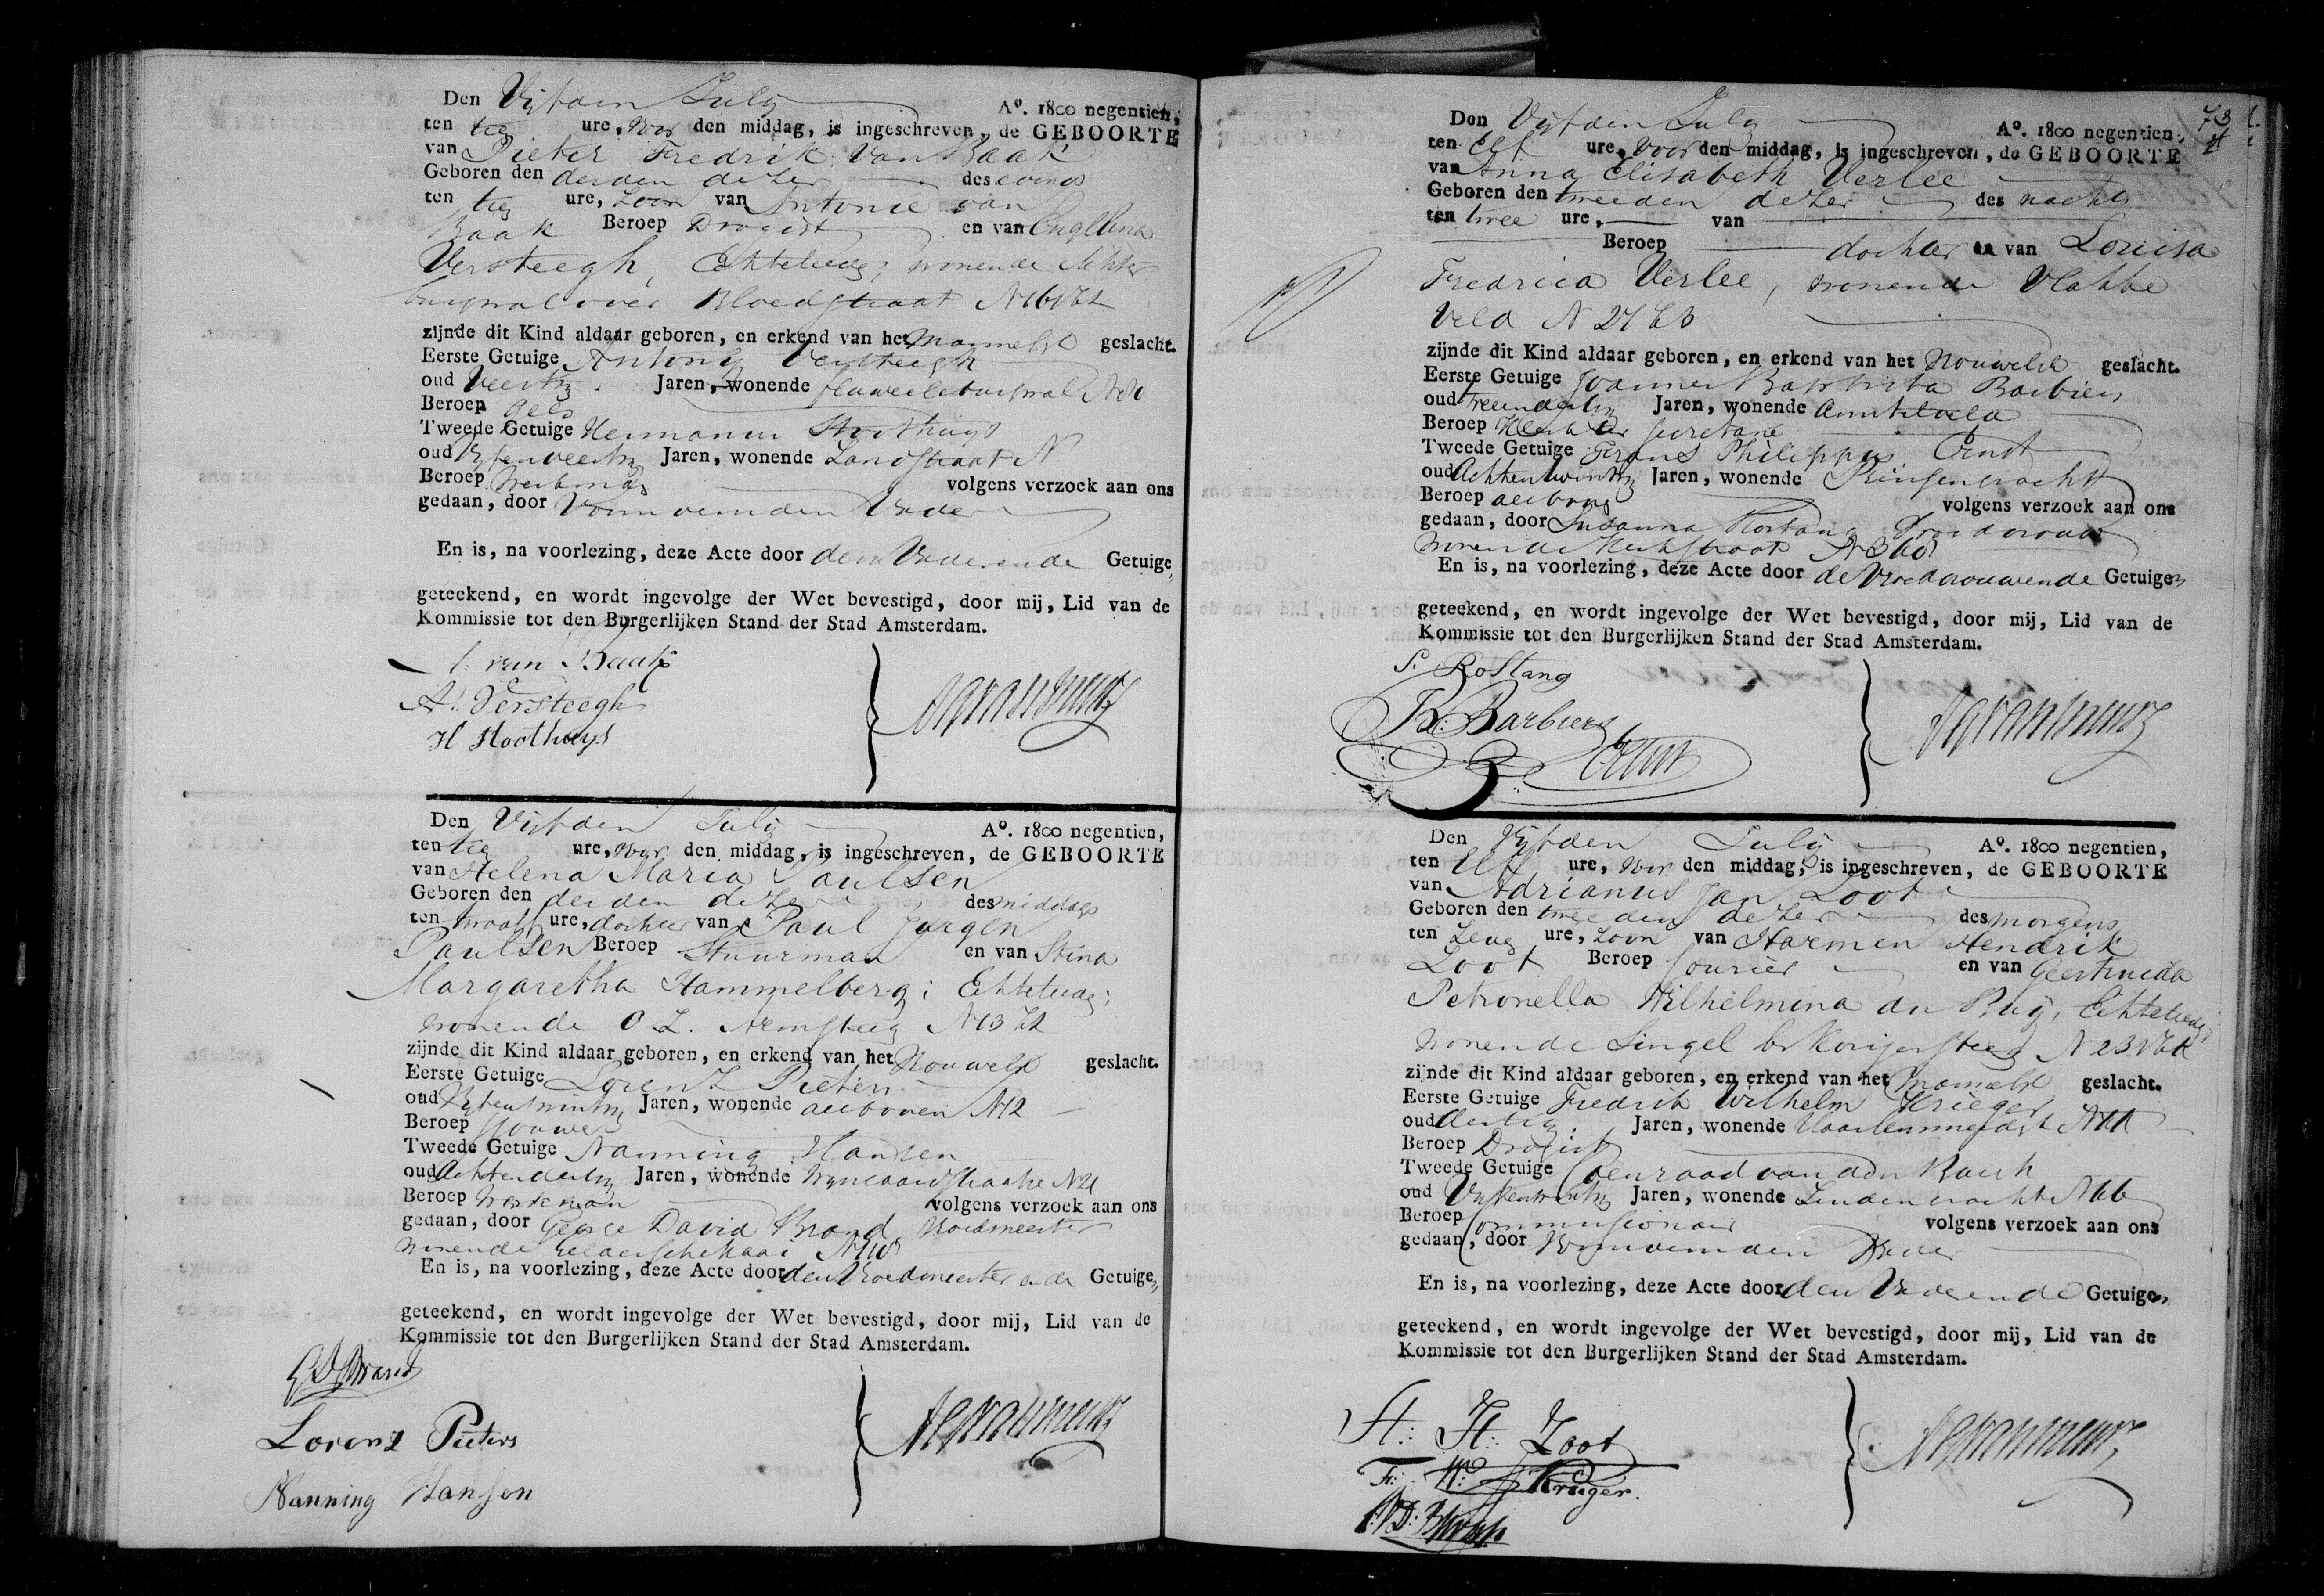 Den Vijfden July Aº. 1800 negentien,
ten tien ure, voor den middag, is ingeschreven, de GEBOORTE
van Pieter Fredrik van Baak
Geboren den derden dezer des avonds
ten tien ure, Zoon van Antonie van
Baak Beroep Drogist en van Engelina
Versteegh, Echtelieden, wonende Achter
burgwal over Bloedstraat
zijnde dit Kind aldaar geboren, en erkend van het Mannelijk geslacht.
Eerste Getuige Antonij Versteegh
oud Veertig Jaren, wonende Fluweeleburgwal
Beroep
Tweede Getuige Hermanus Hoothuys
oud Vijfenveertig Jaren, wonende Zandstraat N
Beroep volgens verzoek aan ons
gedaan, door Voornoemden Vader
En is, na voorlezing, deze Acte door den Vader en de Getuige,
geteekend, en wordt ingevolge der Wet bevestigd, door mij, Lid van de
Kommissie tot den Burgerlijken Stand der Stad Amsterdam.
A. van Baak
A. Versteegh
H Hoothuys
Den Vijfden July Aº. 1800 negentien,
ten tien ure, voor den middag, is ingeschreven, de GEBOORTE
van Helena Maria Paulsen
Geboren den derden dezer des middags
ten twaalf ure, dochter van Paul Jurgen
Paulsen Beroep Stuurman en van Stina
Margaretha Hammelberg; Echtelieden;
wonende O Z. Armsteeg N 13
zijnde dit Kind aldaar geboren, en erkend van het Vrouwelijk geslacht.
Eerste Getuige Lorenz Pieters
oud Vijfentwintig Jaren, wonende als boven N 12
Beroep Sjouwer
Tweede Getuige Nanning Hansen
oud Achtendertig Jaren, wonende
Beroep Werkman volgens verzoek aan ons
gedaan, door George David Brand Vroedmeester
wonende Geldersche kaai
En is, na voorlezing, deze Acte door den Vroedmeester en de Getuige,
geteekend, en wordt ingevolge der Wet bevestigd, door mij, Lid van de
Kommissie tot den Burgerlijken Stand der Stad Amsterdam.
G D Brand
Lorenz Pieters
Nanning Hansen
73
Den Vijfden July Aº. 1800 negentien,
ten Elf ure, voor den middag, is ingeschreven, de GEBOORTE
van Anna Elisabeth Verlee
Geboren den tweeden dezer des nachts
ten twee ure, van
Beroep dochter en van Louisa
Fredrica Verlee, wonende Vlakke
Veld N 27
zijnde dit Kind aldaar geboren, en erkend van het Vrouwelijk geslacht.
Eerste Getuige Joannes Baptista Barbiers
oud Jaren, wonende Amstelveld
Beroep secretarie
Tweede Getuige Frans Philippus Ernst
oud Achtentwintig Jaren, wonende Prinsengracht
Beroep als boven volgens verzoek aan ons
gedaan, door Susanna Rostang Vroedvrouw
wonende Kerkstraat
En is, na voorlezing, deze Acte door de Vroedvrouw en de Getuigen
geteekend, en wordt ingevolge der Wet bevestigd, door mij, Lid van de
Kommissie tot den Burgerlijken Stand der Stad Amsterdam.
S. Rostang
B. Barbiers
Ernst
Den Vijfden July Aº. 1800 negentien,
ten Elf ure, voor den middag, is ingeschreven, de GEBOORTE
van Adrianus Jan Loot
Geboren den tweeden dezer des morgens
ten zeven ure, Zoon van Harmen Hendrik
Loot Beroep Courier en van Geertruida
Petronella Wilhelmina du Buy, Echtelieden;
wonende Singel
zijnde dit Kind aldaar geboren, en erkend van het Mannelijk geslacht.
Eerste Getuige Fredrik Wilhelm Krieger
oud dertig Jaren, wonende
Beroep Drogist
Tweede Getuige Coenraad van den Bosch
oud Vijfentwintig Jaren, wonende Lindengracht
Beroep Commissionair volgens verzoek aan ons
gedaan, door Voornoemden Vader
En is, na voorlezing, deze Acte door den Vader en de Getuige,
geteekend, en wordt ingevolge der Wet bevestigd, door mij, Lid van de
Kommissie tot den Burgerlijken Stand der Stad Amsterdam.
H: H: Loot
Fr: W: Krieger.